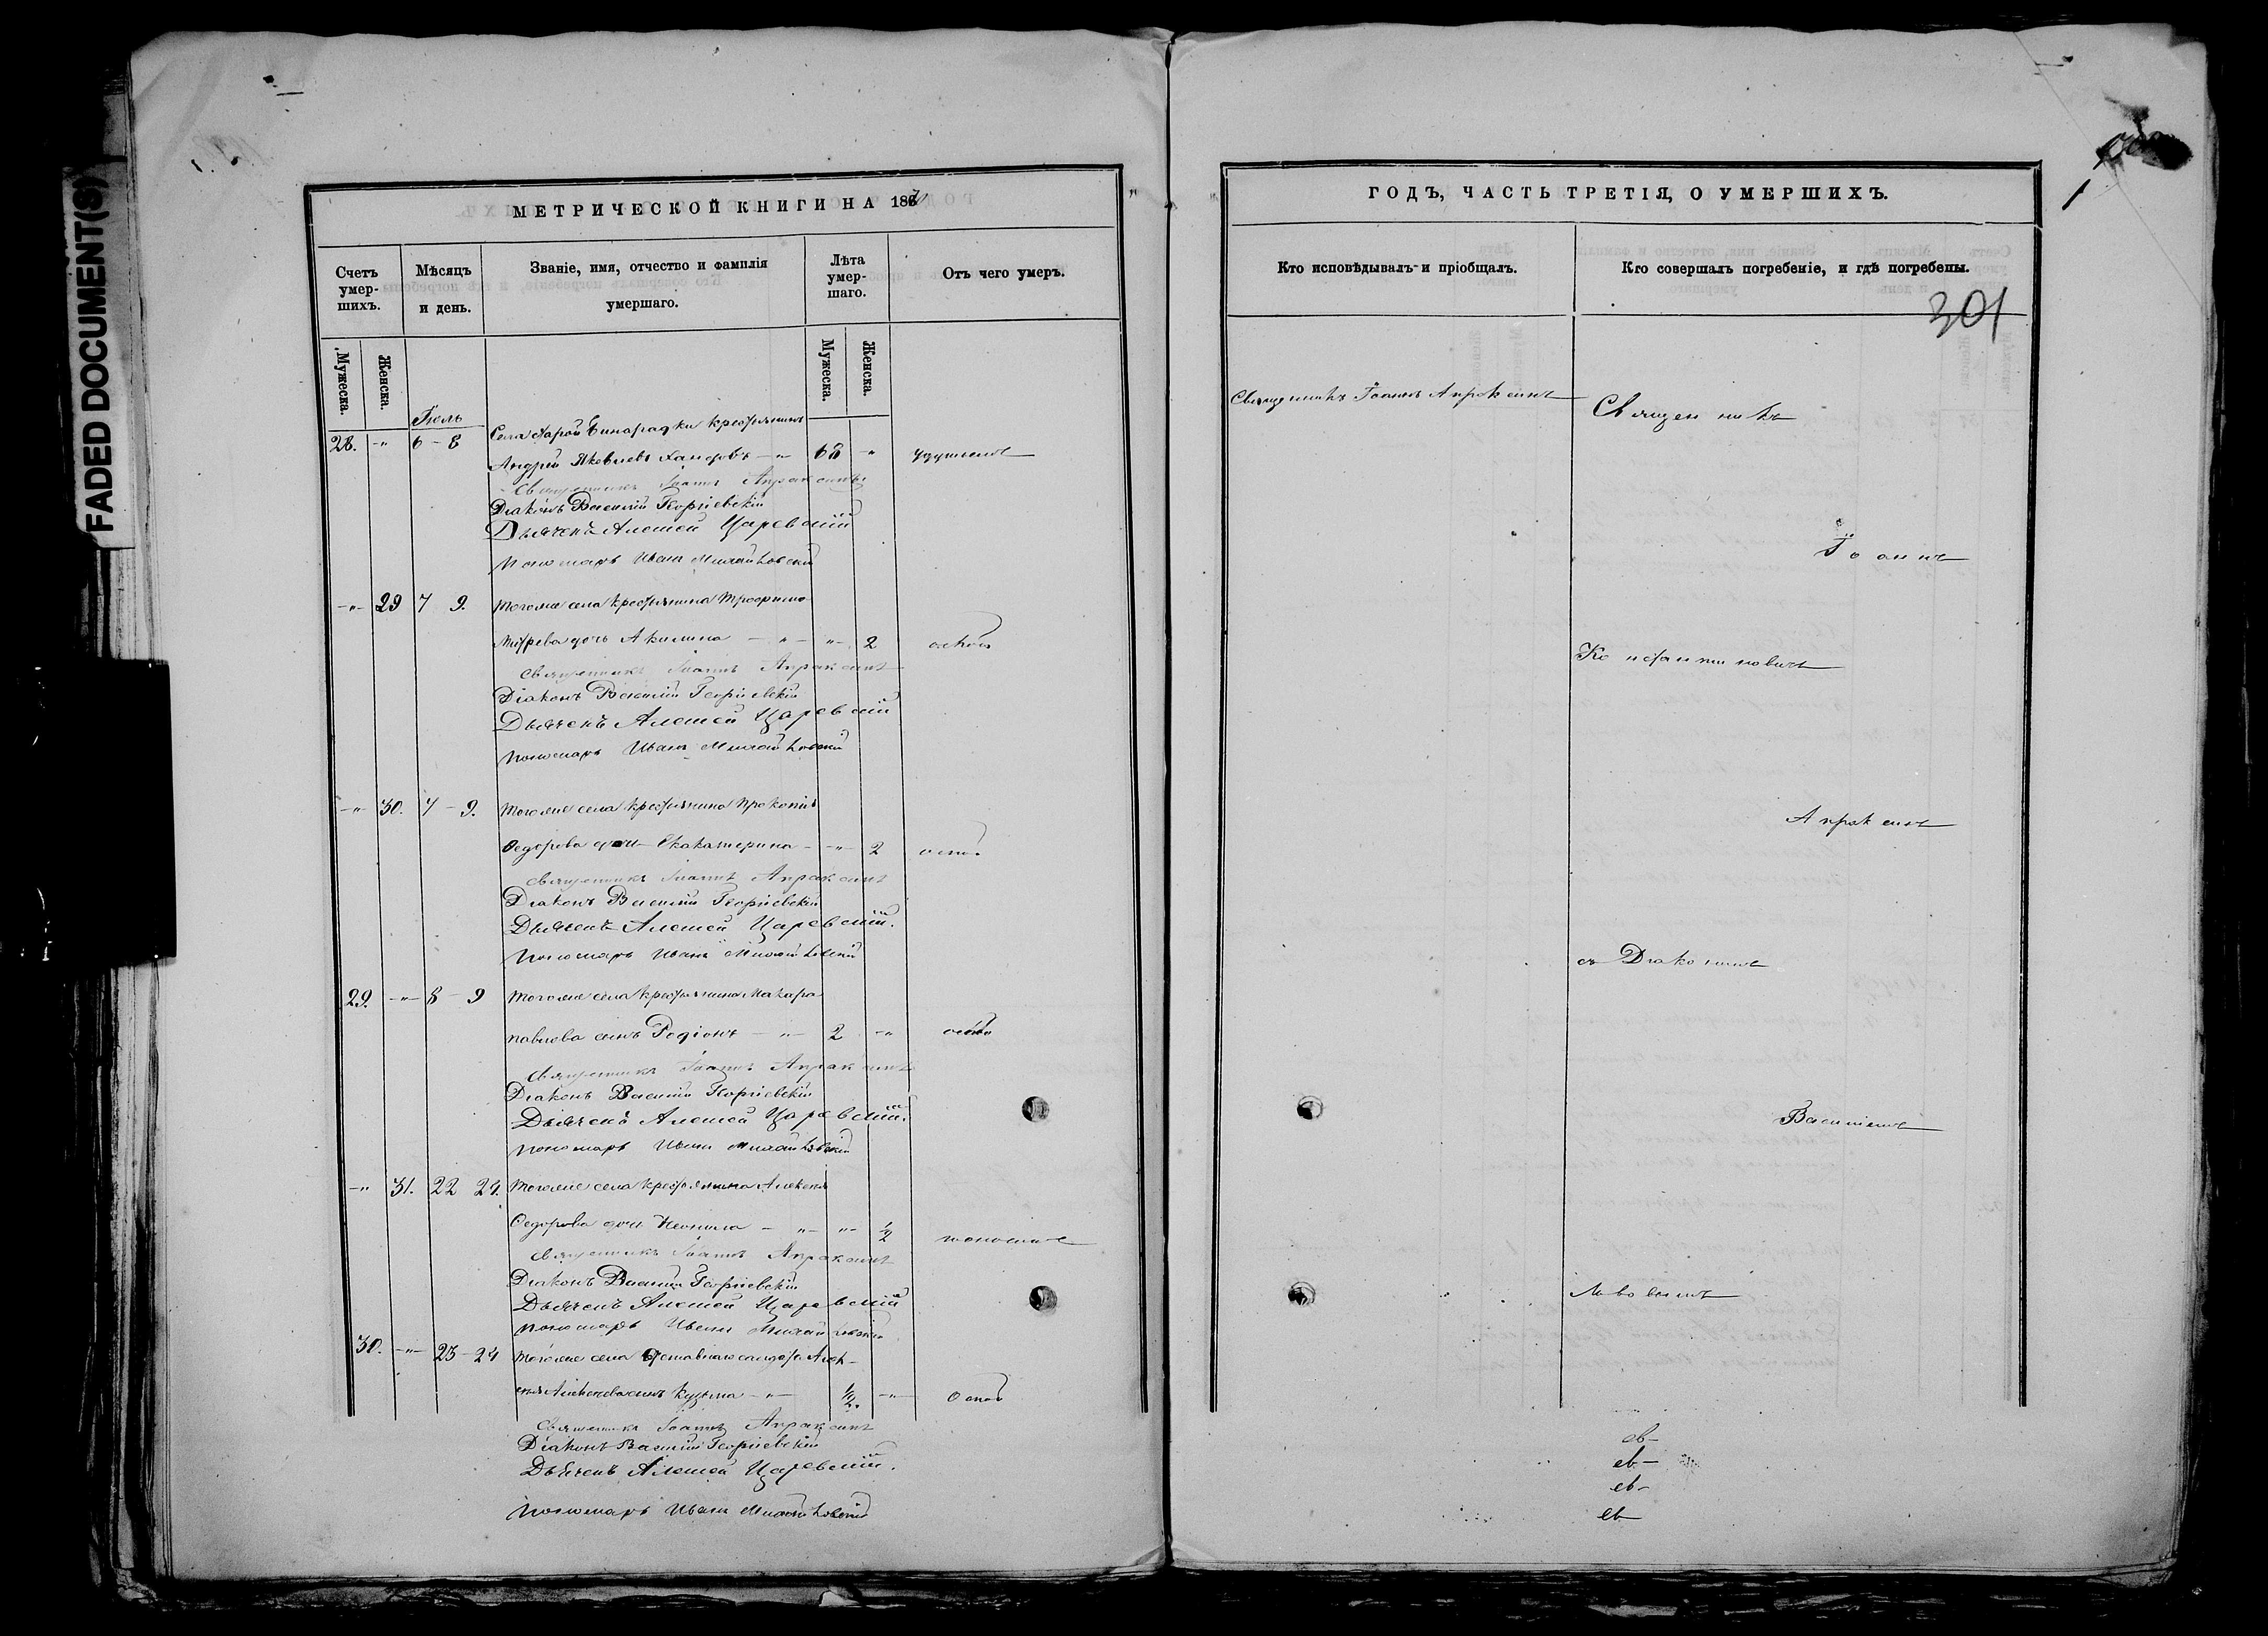 FADED DOCUMENT(S)
МЕТРИЧЕСКОЙ КНИГИ НА 187
Счетъ умер-шихъ.
Мѣсяцъ и день.
Званіе, имя, отчество и фамилія умершаго.
Лѣта умер-шаго.
Отъ чего умеръ.
Мужеска.
Женска.
Мужеска.
Женска.
Іюль
Села Старой Бинарадки крестьянинъ
28. -"- 6 - 8 Андрей Яковлевъ 68 "
Священникъ Іоаннъ Апраксинъ
Діаконъ Василій Георгіевскій
Дьячекъ Алексей Царевскій
Пономарь Иванъ Михайловскій
-"- 29 7 9. Тогоже села крестьянина
дочь Акилина - " - " - 2 оспой
Священникъ Іоаннъ Апраксинъ
Діаконъ Василій Георгіевскій
Дьячекъ Алексей Царевскій
Пономарь Иванъ Михайловскій
-"- 30. 7 - 9. Тогоже села крестьянина Прокопія
Федорова дочь Екатерина - " - 2 оспой
Священникъ Іоаннъ Апраксинъ
Діаконъ Василій Георгіевскій
Дьячекъ Алексей Царевскій.
Пономарь Иванъ Михайловскій
29. -"- 8 - 9 Тогоже села крестьянина Макара
Павлова сынъ Родіонъ - " - 2 -"- оспой
Священникъ Іоаннъ Апраксинъ
Діаконъ Василій Георгіевскій
Дьячекъ Алексей Царевскій.
Пономарь Иванъ Михайловскій
-"- 31. 22 24. Тогоже села крестьянина Алексея
Федорова дочь Неонила - " - " - 1/2 поносомъ
Священникъ Іоаннъ Апраксинъ
Діаконъ Василій Георгіевскій
Дьячекъ Алексей Царевскій
Пономарь Иванъ Михайловскій
30. -"- 23 - 24 Тогоже села отставнаго солдата Алек-
сея Алексеева сынъ Кузьма - " - 1/2. -"- Оспой
Священникъ Іоаннъ Апраксинъ
Діаконъ Василій Георгіевскій
Дьячекъ Алексей Царевскій.
Пономарь Иванъ Михайловскій
ГОДЪ, ЧАСТЬ ТРЕТІЯ, О УМЕРШИХЪ.
Кто исповѣдывалъ и пріобщалъ.
Кто совершалъ погребеніе, и гдѣ погребены.
301
Священникъ Іоаннъ Апраксинъ
Священникъ
Іоаннъ
Константиновичъ
Апраксинъ
съ Діакономъ
Василіемъ
Львовымъ